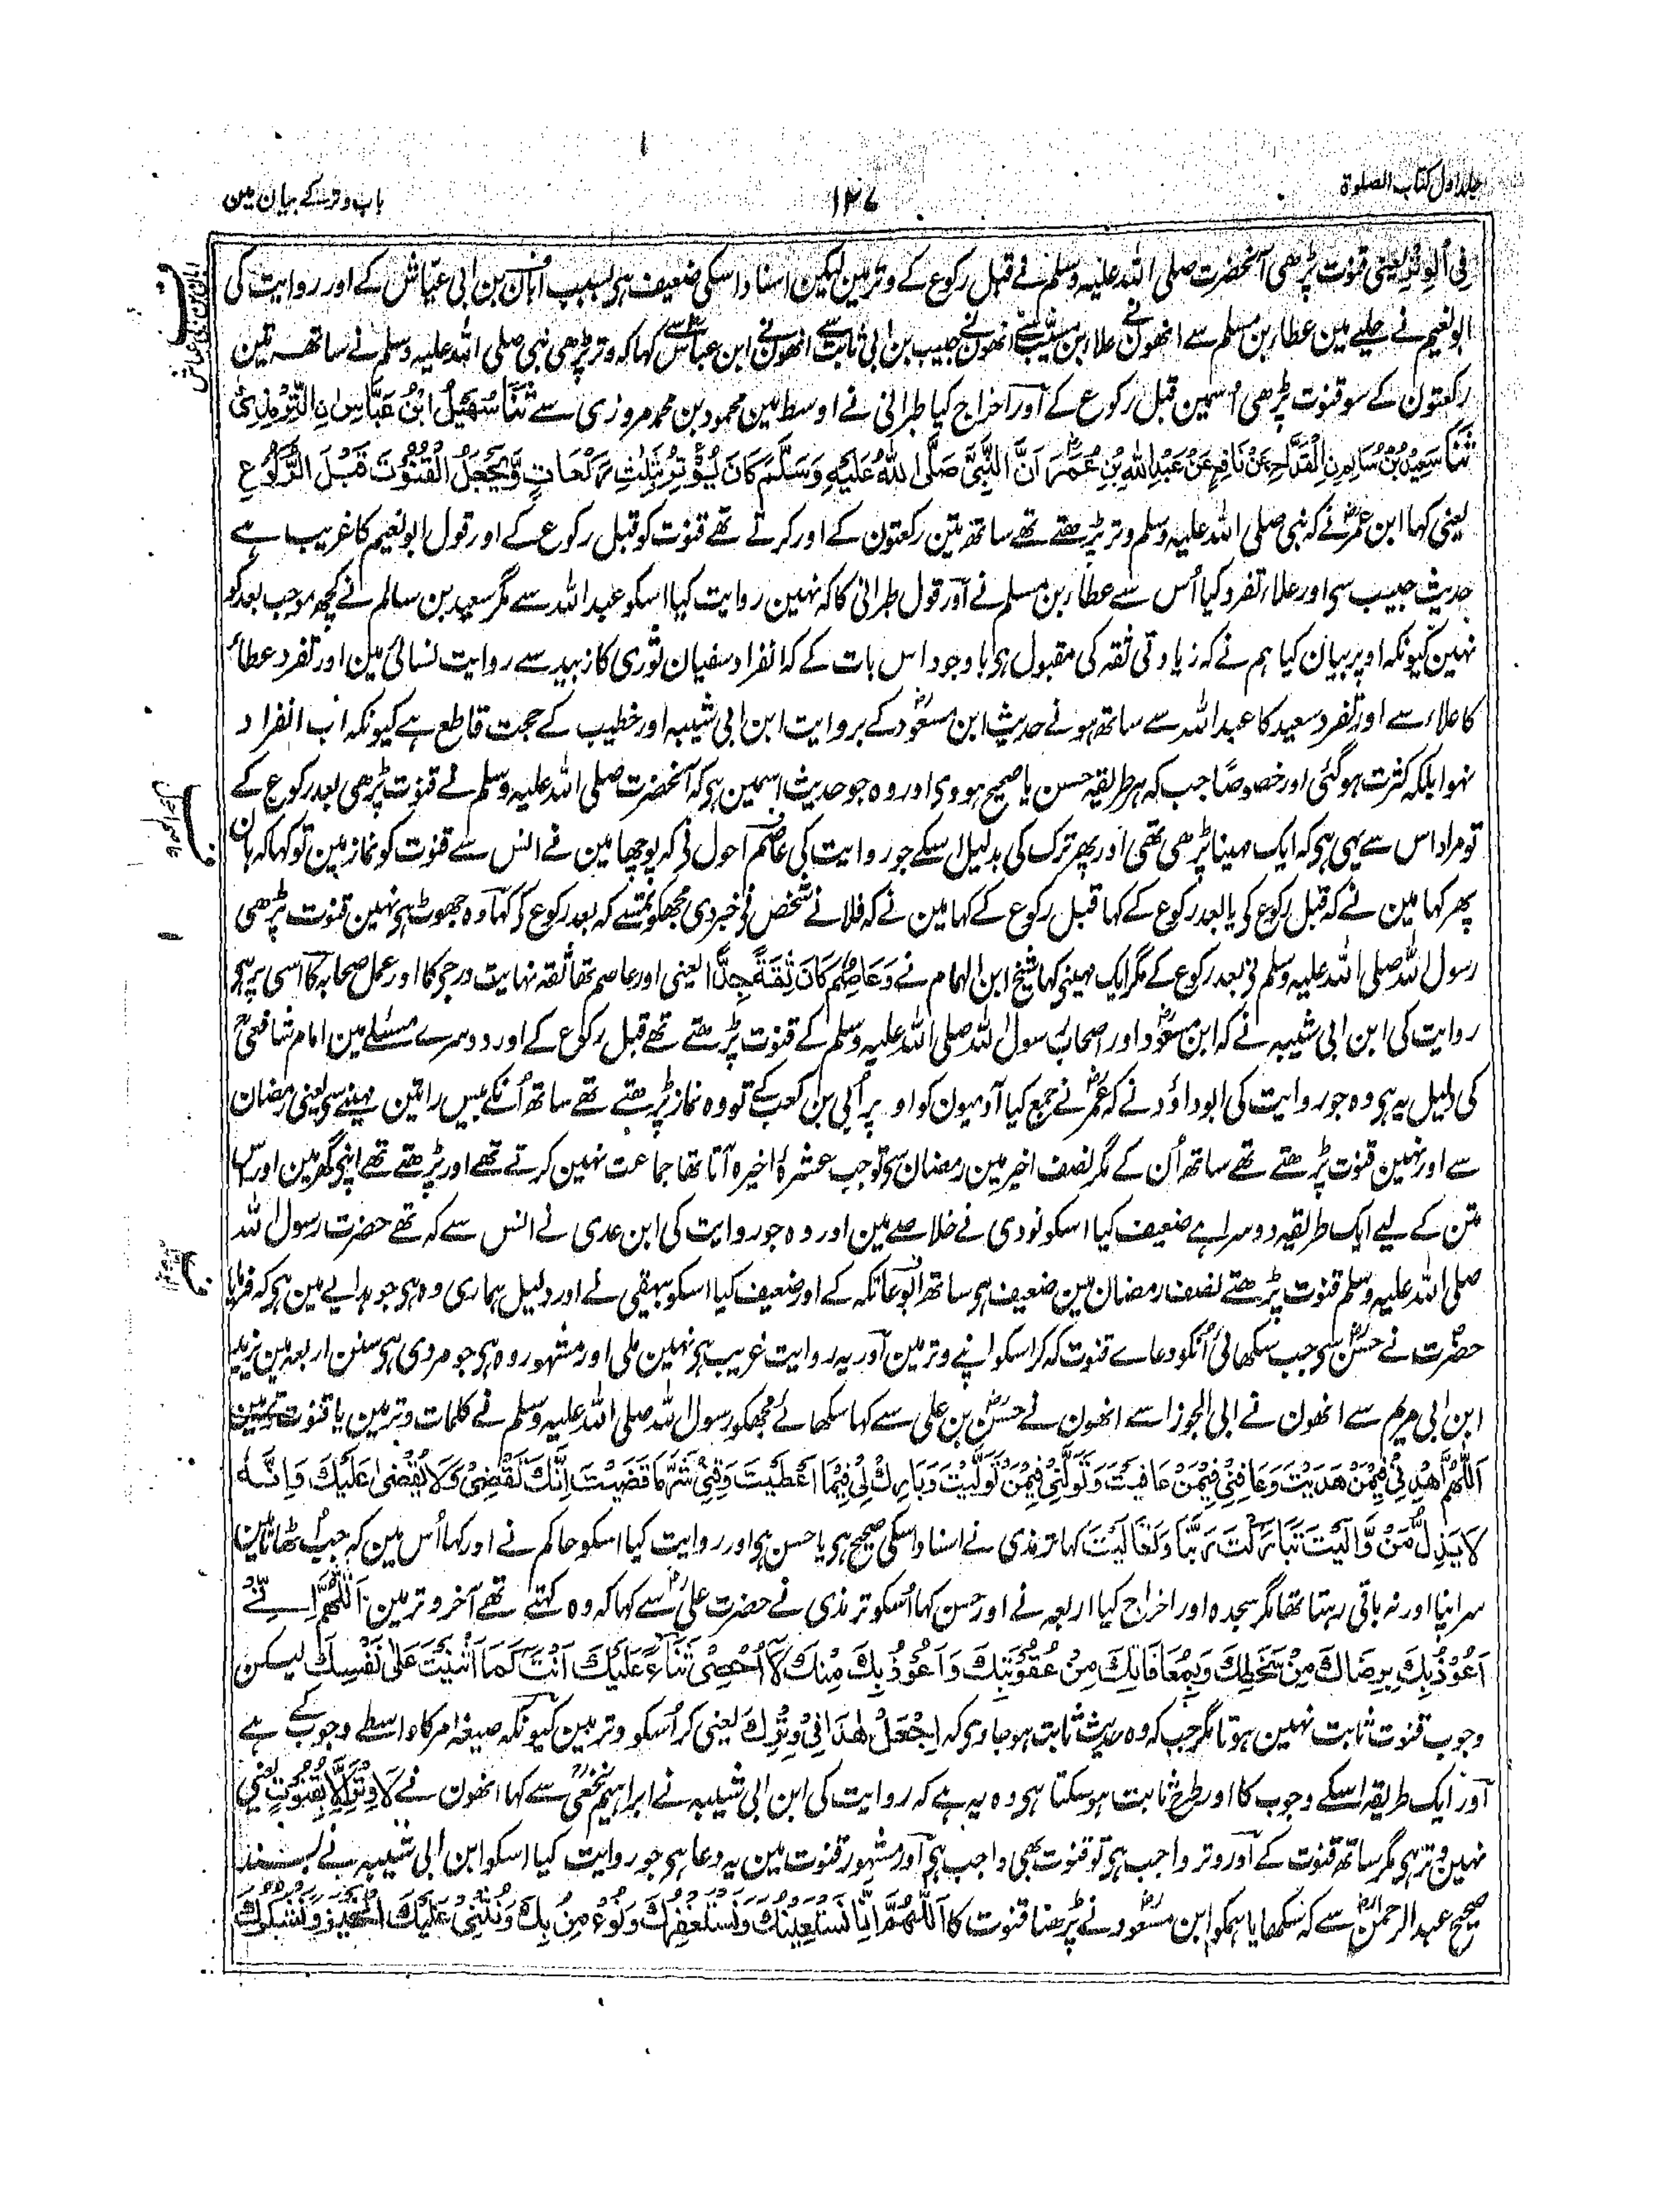 جلد اول کتاب الصلوة
۱۲۷
باب وتر کے بیان مین
فِی الْوِتْرِ یعنی قنوت پڑھی آنحضرت صلی اللہ علیہ وسلم نے قبل رکوع کے وتر مین لیکن اسناد اسکی ضعیف ہی بسبب ابان بن ابی عیاش کے اور روایت کی
ابونعیم نے حلیے مین عطاء بن مسلم سے انھون نے علاء بن مسیب سے انھون نے حبیب بن ابی ثابت سے انھون نے ابن عباس سے کہا کہ وتر پڑھی نبی صلی اللہ علیہ وسلم نے ساتھ تین
رکعتون کے سو قنوت پڑھی اسمین قبل رکوع کے اور اخراج کیا طبرانی نے اوسط مین محمود بن محمد مروزی سے ثَنَا سُهَيْلُ ابْنُ عَبَّاسِ نِ التِّرْمِذِيُّ
ثَنَا سَعِيْدُ بْنُ سَالِمِ نِ الْقَدَّاحِ عَنْ نَافِعٍ عَنْ عَبْدِ اللّٰهِ بْنِ عُمَرَ اَنَّ النَّبِيَّ صَلَّى اللّٰهُ عَلَيْهِ وَسَلَّمَ كَانَ يُوْتِرُ بِثَلٰثِ رَكَعَاتٍ وَّيَجْعَلُ الْقُنُوْتَ قَبْلَ الرُّكُوْعِ
یعنی کہا ابن عمر نے کہ نبی صلی اللہ علیہ وسلم وتر پڑھتے تھے ساتھ تین رکعتون کے اور کرتے تھے قنوت کو قبل رکوع کے اور قول ابونعیم کا غریب ہے
حدیث حبیب سی اور علاء تفرد کیا اُس سے عطاء بن مسلم نے اور قول طبرانی کا کہ نہین روایت کیا اسکو عبداللہ سے مگر سعید بن سالم نے کچھ موجب بعد کو
نہین کیونکہ اوپر بیان کیا ہم نے کہ زیادتی ثقہ کی مقبول ہی باوجود اس بات کے کہ انفراد سفیان ثوری کا زبید سے روایت نسائی مین اور تفرد عطاء
کا علاء سے اور تفرد سعید کا عبداللہ سے ساتھ ہونے حدیث ابن مسعود کے بروایت ابن ابی شیبہ اور خطیب کے حجت قاطع ہے کیونکہ اب انفراد
نہوا بلکہ کثرت ہوگئی اور خصوصًا جب کہ ہر طریقہ حسن یا صحیح ہووی اور وہ جو حدیث اسمین ہی کہ آنحضرت صلی اللہ علیہ وسلم نے قنوت پڑھی بعد رکوع کے
تو مراد اس سے یہی ہی کہ ایک مہینا پڑھی تھی اور پھر ترک کی بدلیل اسکے جو روایت کی عاصم احول نی کہ پوچھا مین نے انس سے قنوت کو نماز مین تو کہا کہ ہان
پھر کہا مین نے کہ قبل رکوع کی یا بعد رکوع کے کہا قبل رکوع کے کہا مین نے کہ فلانے شخص نی خبر دی مجھکو تمسے کہ بعد رکوع کی کہا وہ جھوٹ ہی نہین قنوت پڑھی
رسول اللہ صلی اللہ علیہ وسلم نی بعد رکوع کے مگر ایک مہینی کہا شیخ ابن الہمام نے وَعَاصِمٌ كَانَ ثِقَةً جِدًّا یعنی اور عاصم تھا ثقہ نہایت درجی کا اور عمل صحابہ کا اسی پر ہی
روایت کی ابن ابی شیبہ نے کہ ابن مسعود اور اصحاب رسول اللہ صلی اللہ علیہ وسلم کے قنوت پڑھتے تھے قبل رکوع کے اور دوسرے مسئلے مین امام شافعی
کی دلیل یہ ہی وہ جو روایت کی ابوداؤد نے کہ عمر نے جمع کیا آدمیون کو اوپر اُبی بن کعب کے تو وہ نماز پڑھتے تھے ساتھ اُنکے بیس راتین مہینے سی یعنی رمضان
سے اور نہین قنوت پڑھتے تھے ساتھ اُن کے مگر نصف اخیر مین رمضان سی تو جب عشرۂ اخیرہ آتا تھا جماعت نہین کرتے تھے اور پڑھتے تھے اپنی گھر مین اور اس
متن کے لیے ایک طریقہ دوسرا ہے ضعیف کیا اسکو نووی نے خلاصے مین اور وہ جو روایت کی ابن عدی نے انس سے کہ تھے حضرت رسول اللہ
صلی اللہ علیہ وسلم قنوت پڑھتے نصف رمضان مین ضعیف ہی ساتھ ابو عاتکہ کے اور ضعیف کیا اسکو بیہقی نے اور دلیل ہماری وہ ہی جو ہدایے مین ہی کہ فرمایا
حضرت نے حسن سی جب سکھائی اُنکو دعاے قنوت کہ کر اسکو اپنے وتر مین اور یہ روایت غریب ہی نہین ملی اور مشہور وہ ہی جو مروی ہی سنن اربعہ مین برید
ابن ابی مریم سے انھون نے ابی الجوزا سے انھون نے حسن بن علی سے کہا سکھائے مجھکو رسول اللہ صلی اللہ علیہ وسلم نے کلمات وتر مین یا قنوت وتر مین
اَللّٰهُمَّ اهْدِنِيْ فِيْمَنْ هَدَيْتَ وَعَافِنِيْ فِيْمَنْ عَافَيْتَ وَتَوَلَّنِيْ فِيْمَنْ تَوَلَّيْتَ وَبَارِكْ لِيْ فِيْمَا اَعْطَيْتَ وَقِنِيْ شَرَّ مَا قَضَيْتَ اِنَّكَ تَقْضِيْ وَلَا يُقْضٰى عَلَيْكَ وَاِنَّهٗ
لَا يَذِلُّ مَنْ وَّالَيْتَ تَبَارَكْتَ رَبَّنَا وَتَعَالَيْتَ کہا ترمذی نے اسناد اسکی صحیح ہی یا حسن ہی اور روایت کیا اسکو حاکم نے اور کہا اُس مین کہ جب اُٹھاتا مین
سر اپنا اور نہ باقی رہتا تھا مگر سجدہ اور اخراج کیا اربعہ نے اور حسن کہا اُسکو ترمذی نے حضرت علی سے کہا کہ وہ کہتے تھے آخر وتر مین اَللّٰهُمَّ اِنِّيْ
اَعُوْذُ بِكَ بِرِضَاكَ مِنْ سَخَطِكَ وَبِمُعَافَاتِكَ مِنْ عُقُوْبَتِكَ وَاَعُوْذُ بِكَ مِنْكَ لَا اُحْصِيْ ثَنَاءً عَلَيْكَ اَنْتَ كَمَا اَثْنَيْتَ عَلٰى نَفْسِكَ لیکن
وجوب قنوت ثابت نہین ہوتا مگر جب کہ وہ حدیث ثابت ہو جاوی کہ اِجْعَلْ هٰذَا فِيْ وِتْرِكَ یعنی کر اُسکو وتر مین کیونکہ صیغہ امر کا واسطے وجوب کے ہے
اور ایک طریقہ اسکے وجوب کا اور طرح ثابت ہو سکتا ہی وہ یہ ہے کہ روایت کی ابن ابی شیبہ نے ابراہیم نخعی سے کہا انھون نے لَا وِتْرَ اِلَّا بِقُنُوْتٍ یعنی
نہین وتر ہی مگر ساتھ قنوت کے اور وتر واجب ہی تو قنوت بھی واجب ہی اور مشہور قنوت مین یہ دعا ہی جو روایت کیا اسکو ابن ابی شیبہ نے بسند
صحیح عبدالرحمن سے کہ سکھایا ہمکو ابن مسعود نے پڑھنا قنوت کا اَللّٰهُمَّ اِنَّا نَسْتَعِيْنُكَ وَنَسْتَغْفِرُكَ وَنُؤْمِنُ بِكَ وَنُثْنِيْ عَلَيْكَ الْخَيْرَ وَنَشْكُرُكَ